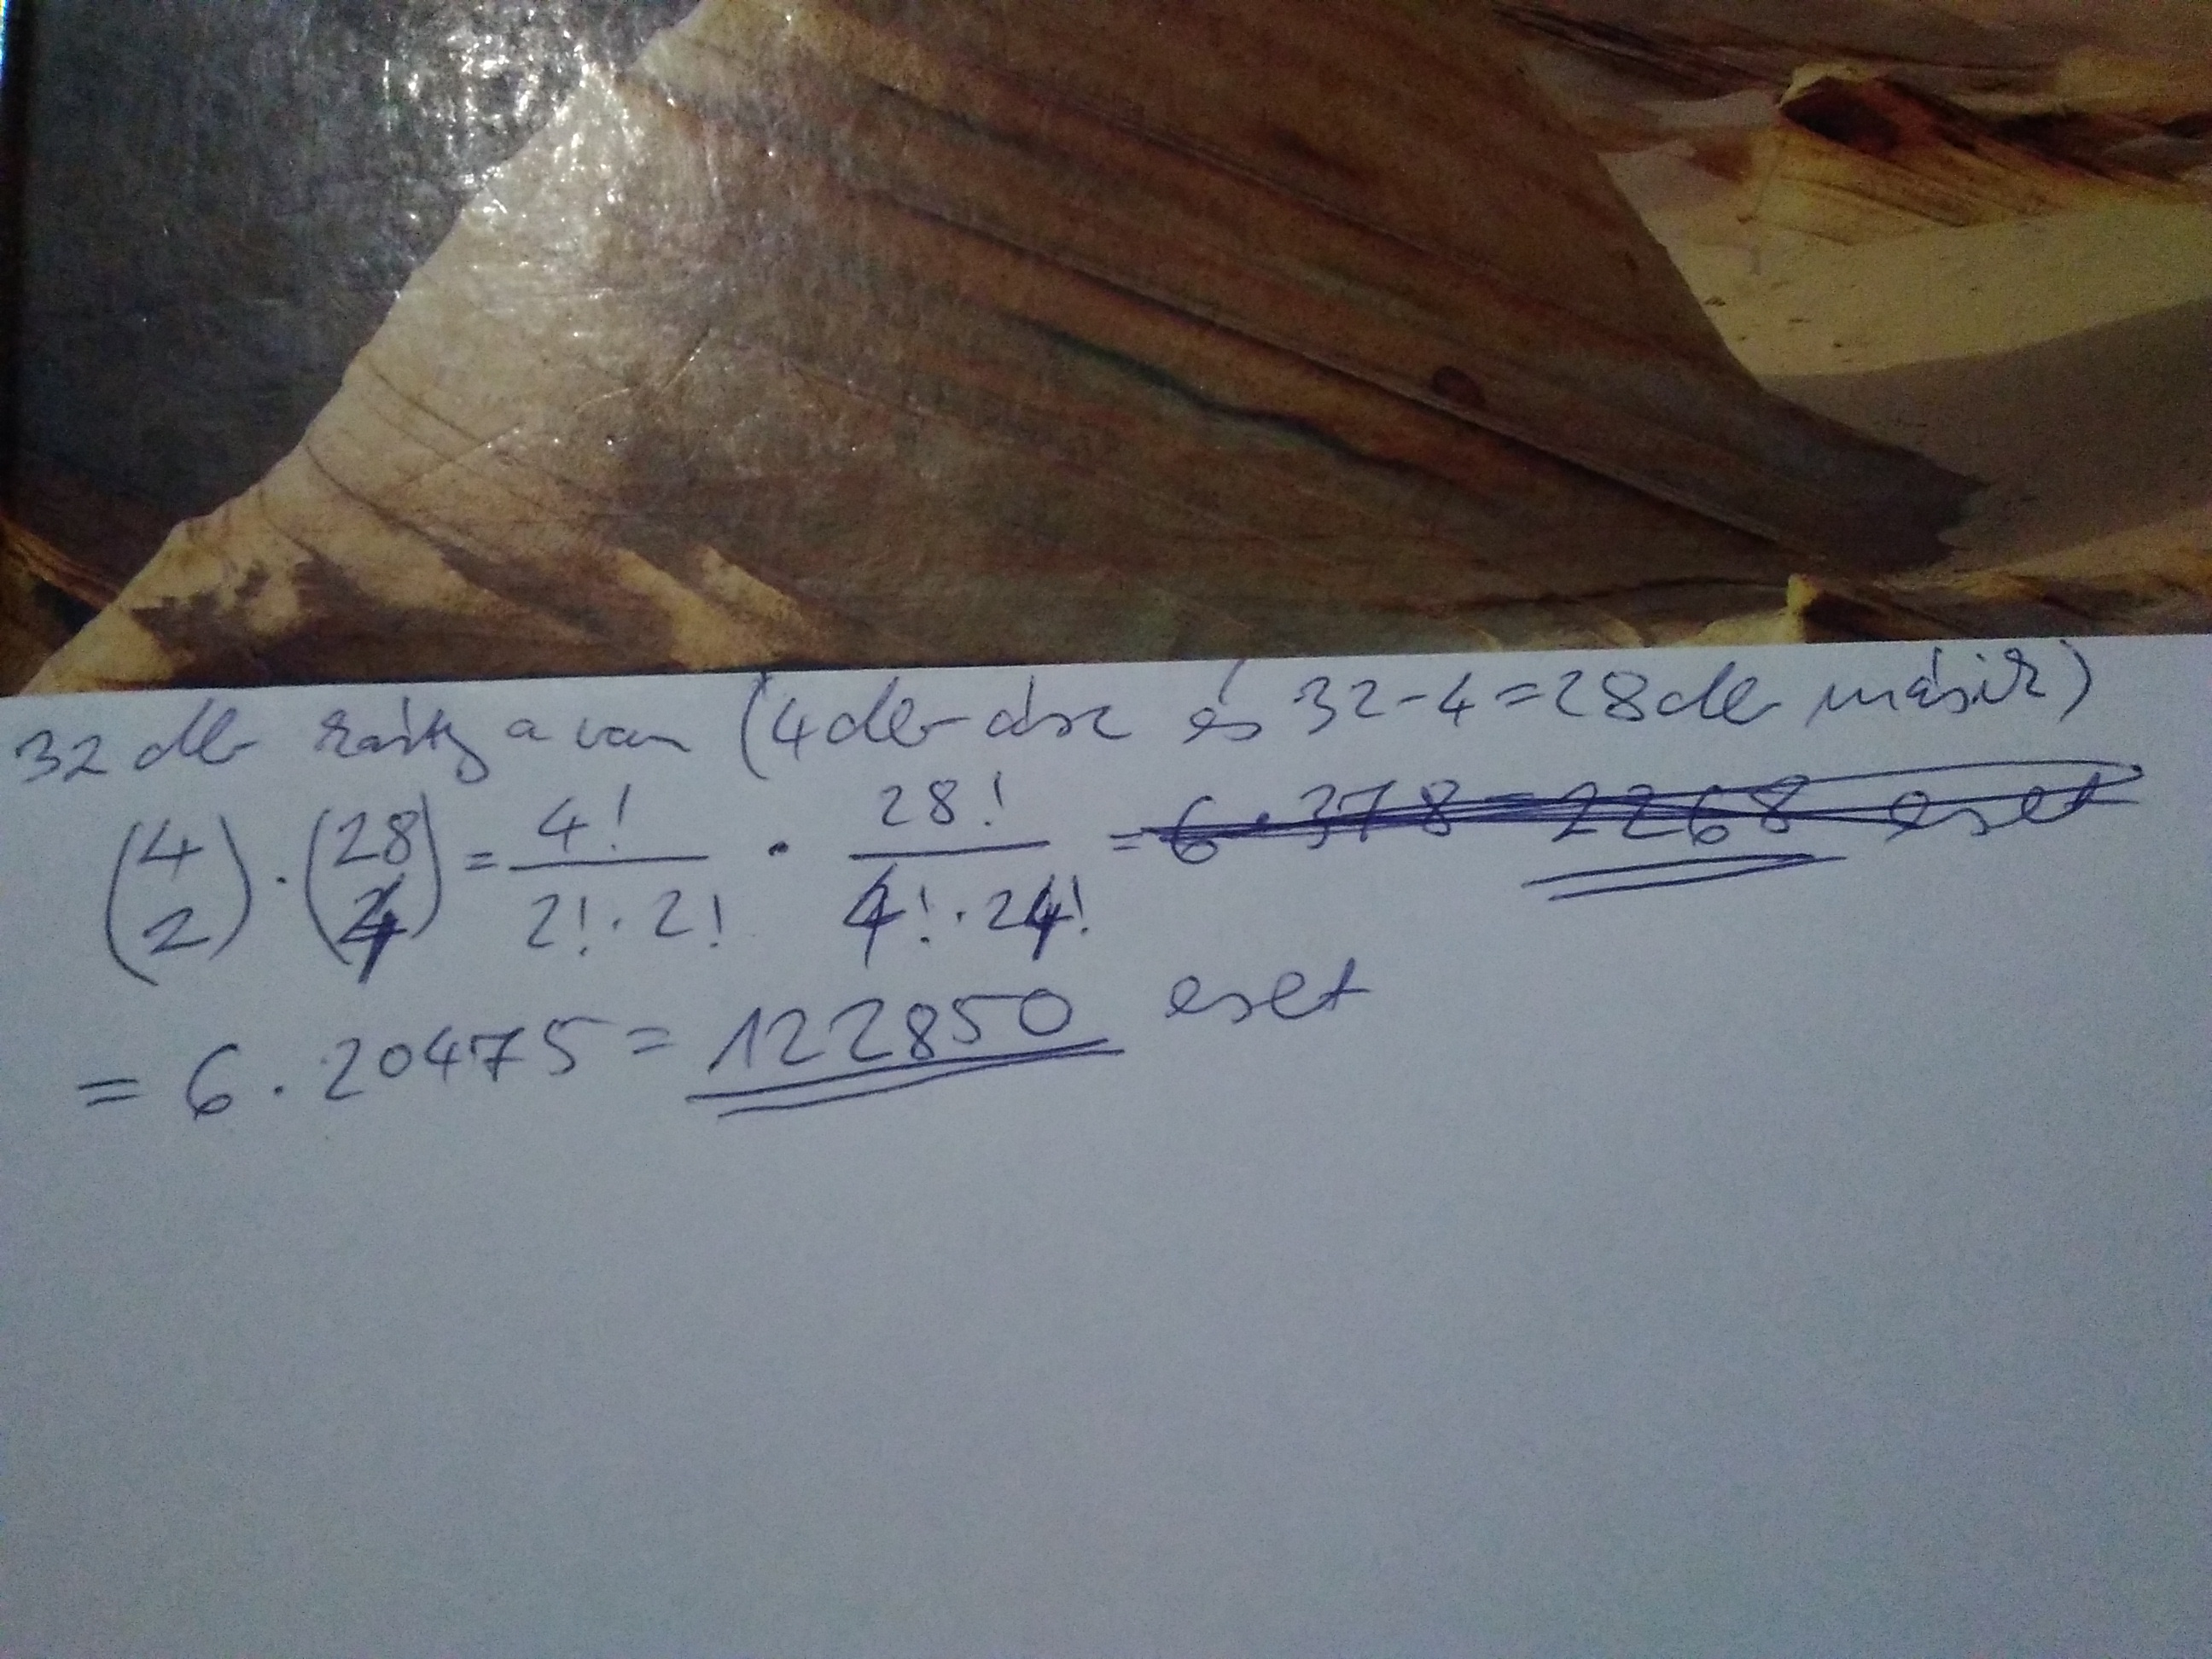 32 db kártya van (4 db ász és 32-4=28 db másik)
(4 2) · (28 4) = 4! / 2! · 2! · 28! / 4! · 24! = 6 · 378 = 2268 eset
= 6 · 20475 = 122850 eset